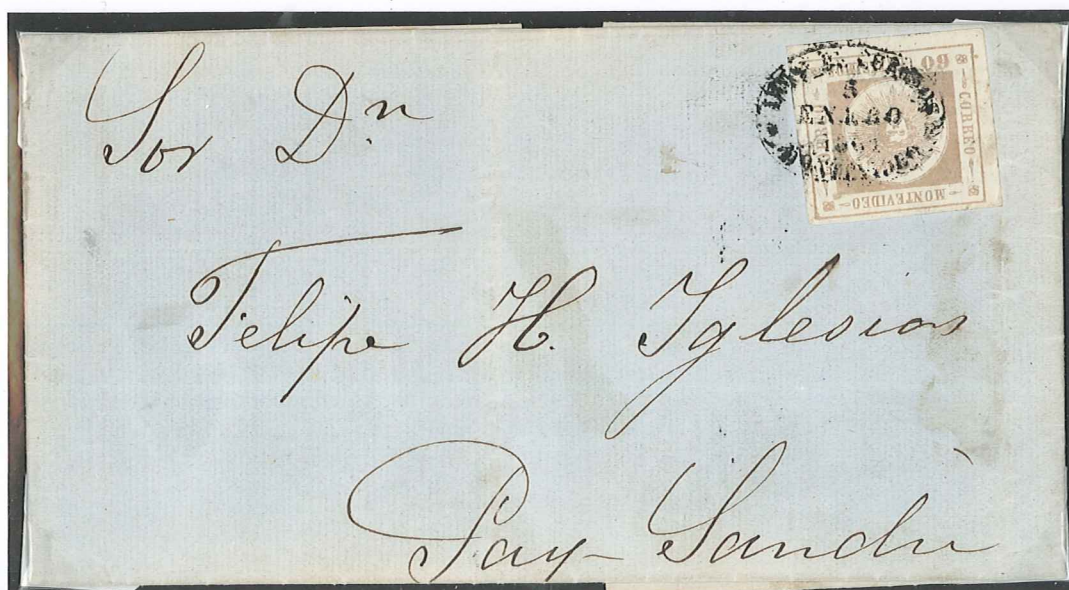 Sor Dn
Felipe H. Iglesias
Pay-Sandù
60
CORREO
MONTEVIDEO
ENERO